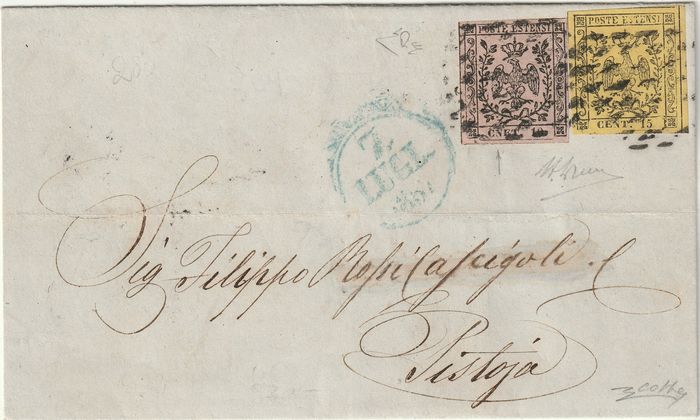 POSTE ESTENSI
CNET. 10
POSTE ESTENSI
CENT. 15
7.
LUGL.
Sig Filippo Rossi Cascigoli
Pistoja